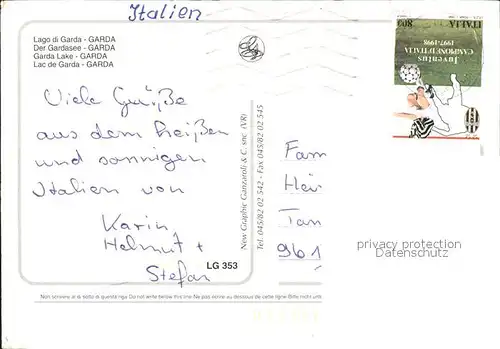 Italien
Lago di Garda - GARDA
Der Gardasee - GARDA
Garda Lake - GARDA
Lac de Garda - GARDA
ITALIA 800
Juventus
CAMPIONE D'ITALIA
1997-1998
Viele Grüße
aus dem heißen
und sonnigen
Italien von
Karin
Helmut +
Stefan
New Graphic Ganzaroli & C. snc (VR)
Tel. 045/82 02 542 - Fax 045/82 02 545
LG 353
Fam
Hei
Tan
961
privacy protection
Datenschutz
Non scrivere al di sotto di questa riga Do not write below this line Ne pas écrire au dessous de cette ligne Bitte nicht unt